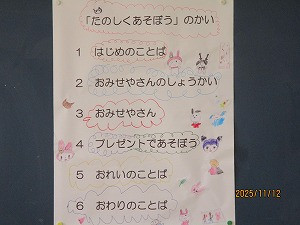 「たのしくあそぼう」のかい
1 はじめのことば
2 おみせやさんのしょうかい
3 おみせやさん
4 プレゼントであそぼう
5 おれいのことば
6 おわりのことば
2025/11/12